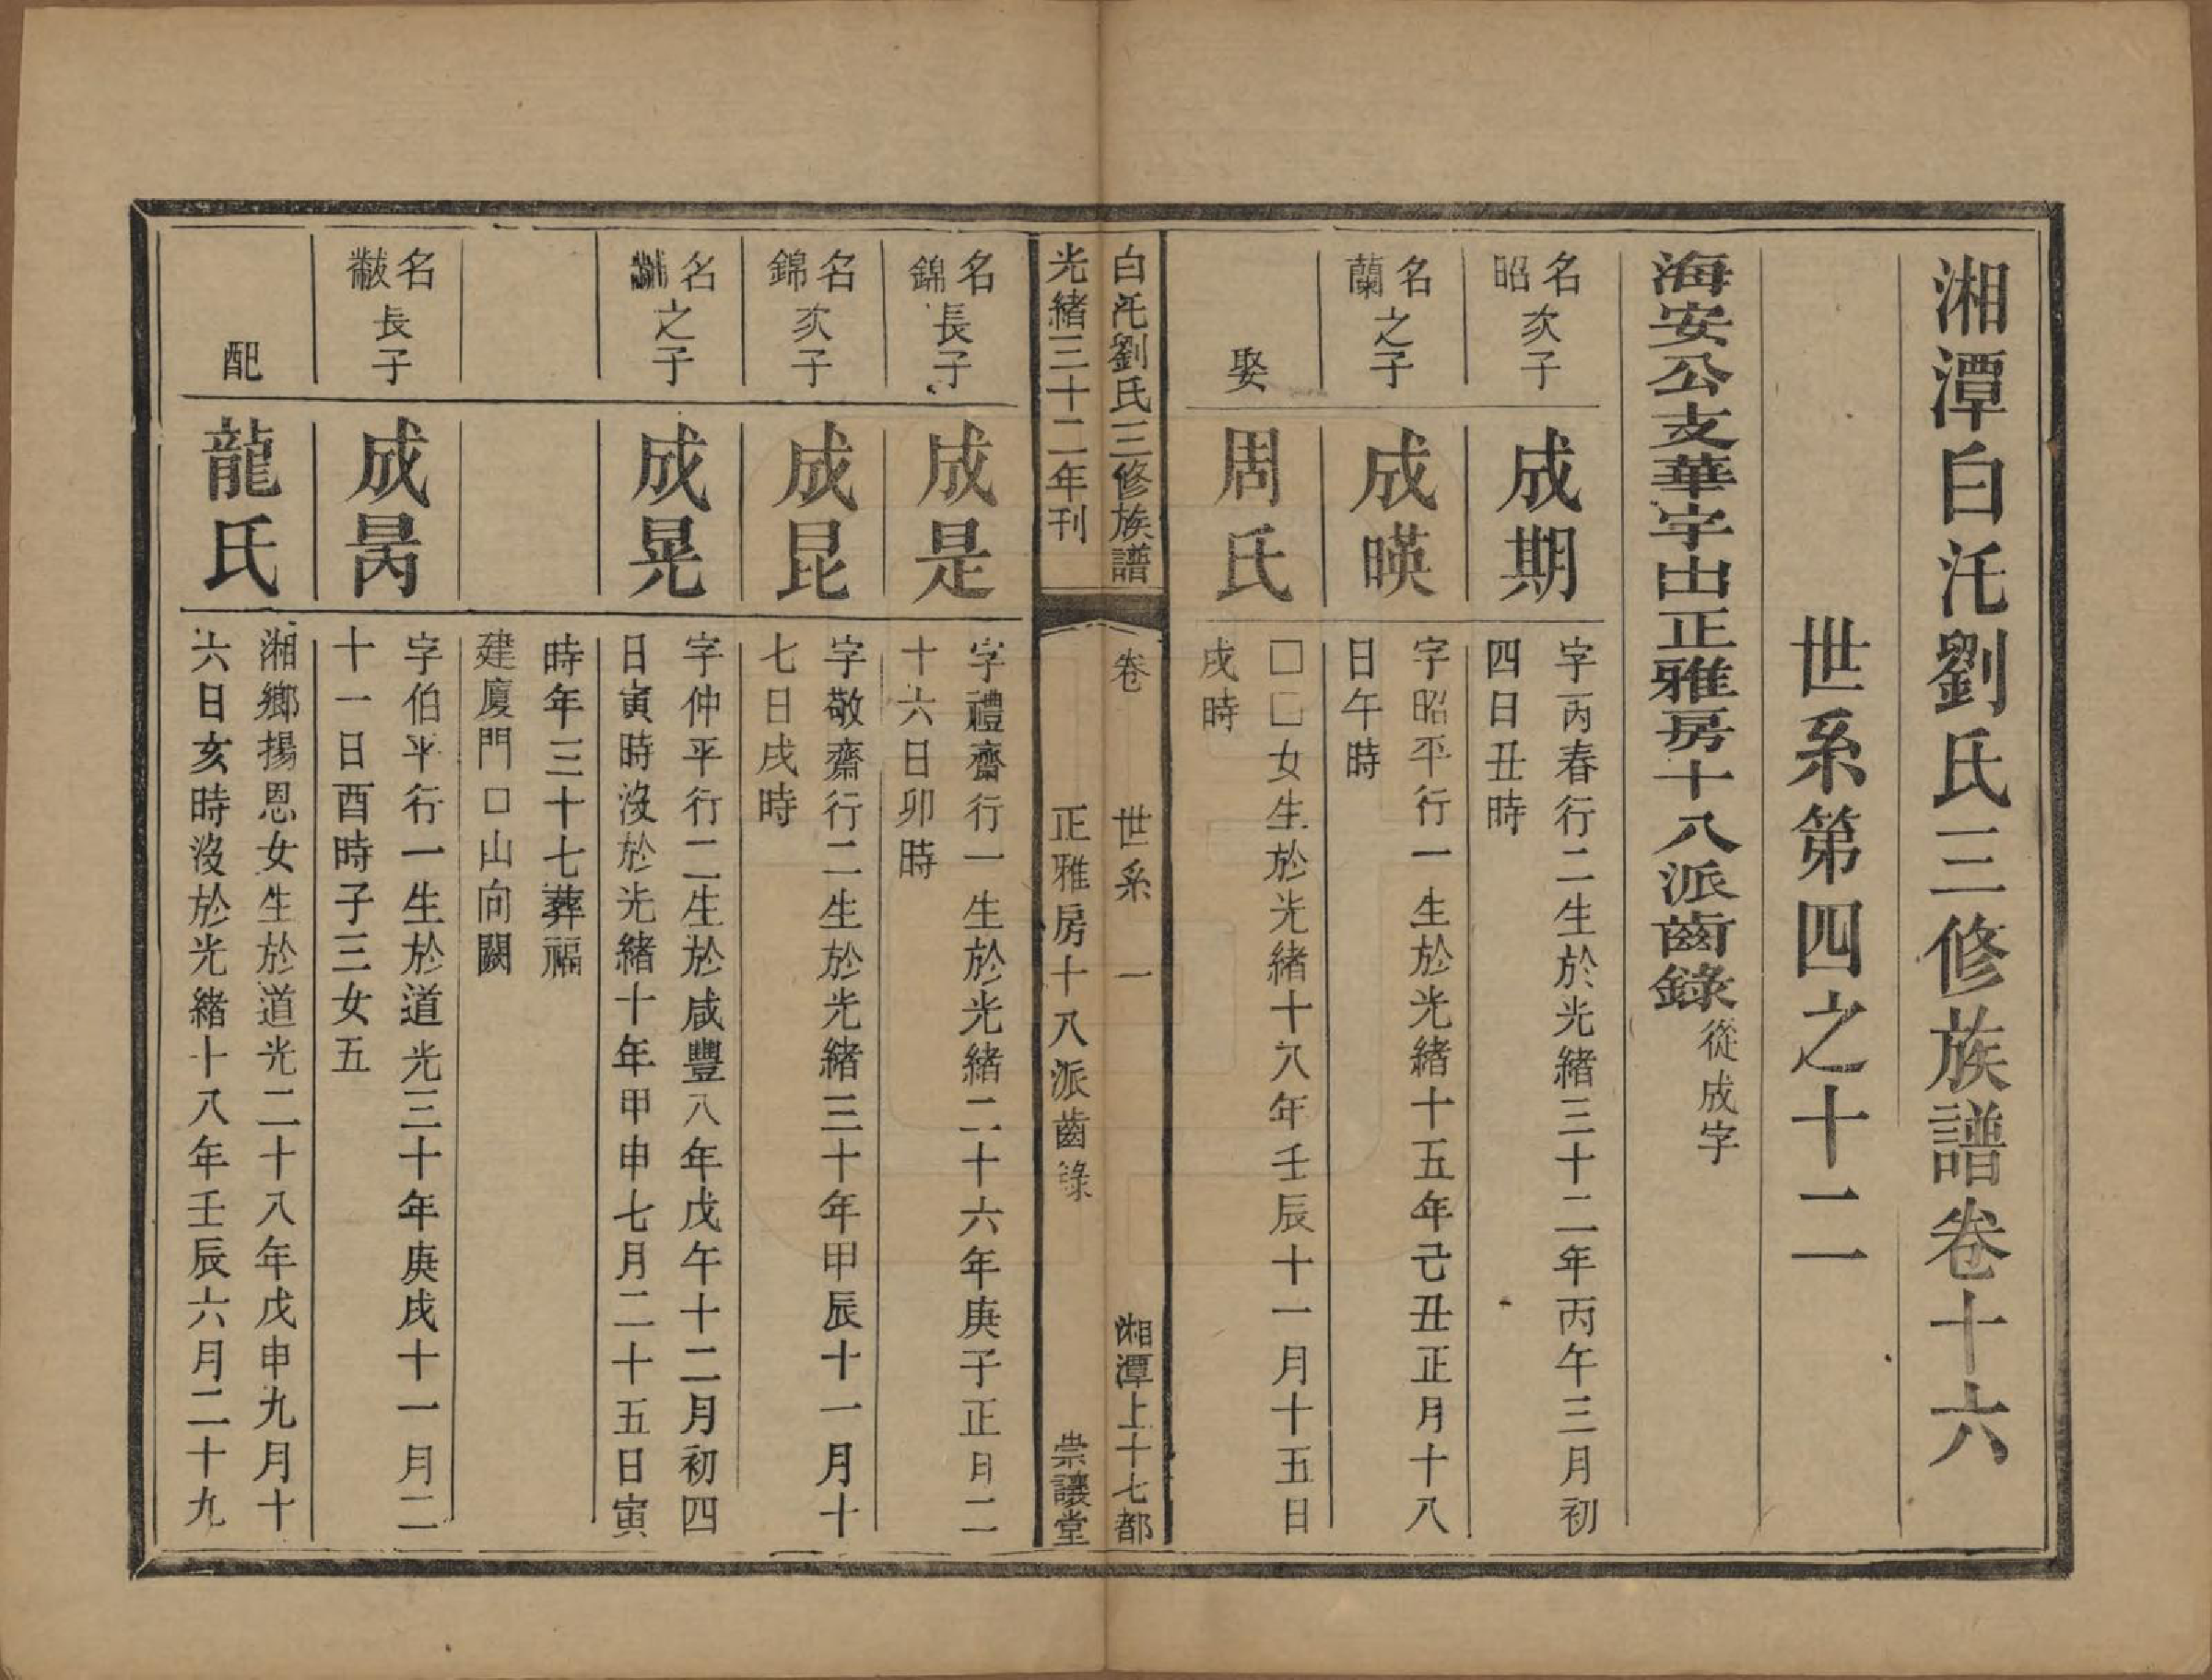 湘潭白汑劉氏三修族譜卷十六
世系第四之十二
海安公支華宇山正雅房十八派齒錄從成字
名昭次子
成期
字丙春行二生於光緒三十二年丙午三月初
四日丑時
名蘭之子
成暎
字昭平行一生於光緒十五年己丑正月十八
日午時
娶
周氏
□□女生於光緒十八年壬辰十一月十五日
戌時
白汑劉氏三修族譜
卷
世系
一
湘潭上十七都
光緒三十二年刊
正雅房十八派齒錄
崇讓堂
名錦長子
成是
字禮齋行一生於光緒二十六年庚子正月二
十六日卯時
名錦次子
成昆
字敬齋行二生於光緒三十年甲辰十一月十
七日戌時
名之子
成晃
字仲平行二生於咸豐八年戊午十二月初四
日寅時沒於光緒十年甲申七月二十五日寅
時年三十七葬福
建廈門口山向闕
名黻長子
成昺
字伯平行一生於道光三十年庚戌十一月二
十一日酉時子三女五
配
龍氏
湘鄉揚恩女生於道光二十八年戊申九月十
六日亥時沒於光緒十八年壬辰六月二十九